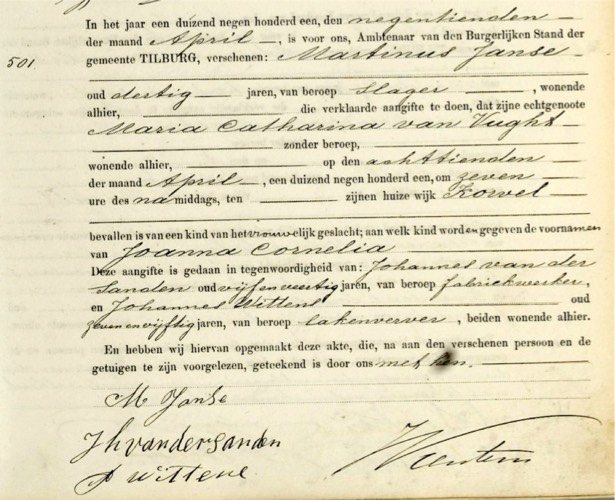 In het jaar een duizend negen honderd een, den negentienden
der maand April, is voor ons, Ambtenaar van den Burgerlijken Stand der
501
gemeente TILBURG, verschenen: Martinus Janse
oud dertig jaren, van beroep slager, wonende
alhier, die verklaarde aangifte te doen, dat zijne echtgenoote
Maria Catharina van Vught
zonder beroep,
wonende alhier, op den achttienden
der maand April, een duizend negen honderd een, om zeven
ure des namiddags, ten zijnen huize wijk Korvel
bevallen is van een kind van het vrouwelijk geslacht; aan welk kind worden gegeven de voornamen
van Joanna Cornelia
Deze aangifte is gedaan in tegenwoordigheid van: Johannes van der
Sanden oud vijfenveertig jaren, van beroep fabriekwerker,
en Johannes Wittens oud
zevenenvijftig jaren, van beroep lakenverver, beiden wonende alhier.
En hebben wij hiervan opgemaakt deze akte, die, na aan den verschenen persoon en de
getuigen te zijn voorgelezen, geteekend is door ons met hen.
M Janse
J h van der sanden
wittene